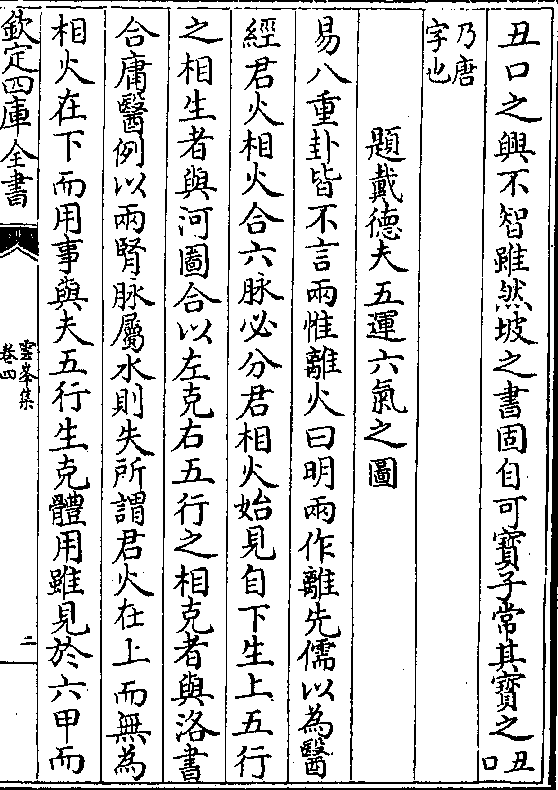 丑口之興不智雖然坡之書固自可寶子常其寶之丑口
乃唐字也
題戴德夫五運六氣之圖
易八重卦皆不言兩惟離火曰明兩作離先儒以為醫
經君火相火合六脉必分君相火始見自下生上五行
之相生者與河圖合以左克右五行之相克者與洛書
合庸醫例以兩腎脉屬水則失所謂君火在上而無為
相火在下而用事與夫五行生克體用雖見於六甲而
欽定四庫全書
雲峯集
卷四
二